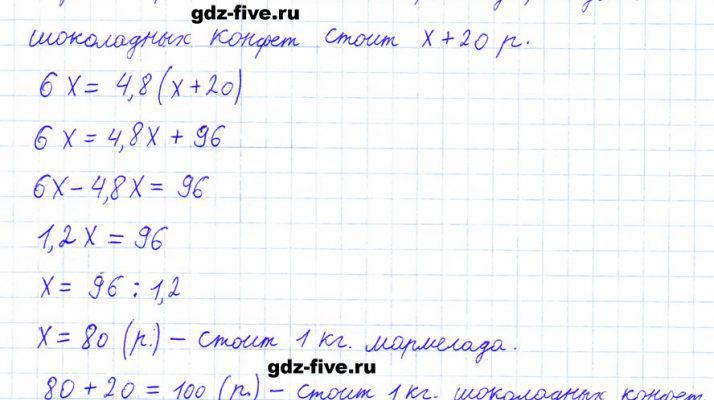 gdz-five.ru
шоколадных конфет стоит x + 20 р.
6x = 4,8(x+20)
6x = 4,8x + 96
6x - 4,8x = 96
1,2x = 96
x = 96 : 1,2
x = 80 (р.) - стоит 1 кг. мармелада.
gdz-five.ru
80 + 20 = 100 (р.) - стоит 1 кг. шоколадных конфет